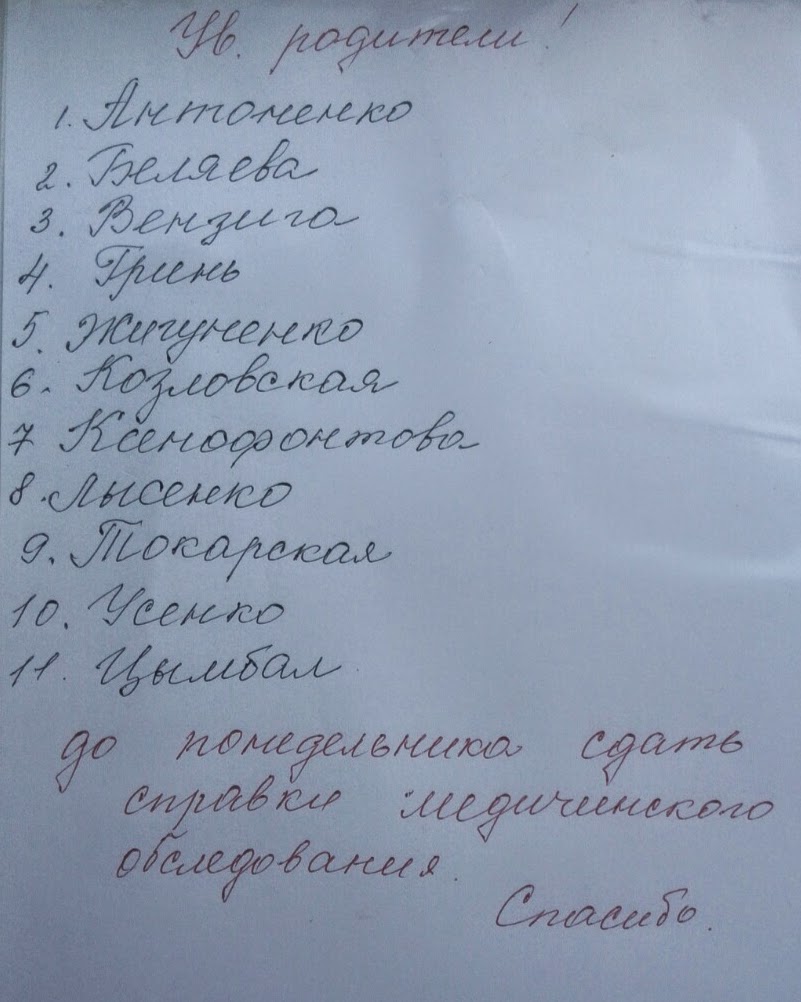 Ув. родители!
1. Антоненко
2. Беляева
3. Вензига
4. Гринь
5. Жигуненко
6. Козловская
7 Ксенофонтова
8. Лысенко
9. Токарская
10. Усенко
11. Цымбал
до понедельника сдать
справки медицинского
обследования.
Спасибо.